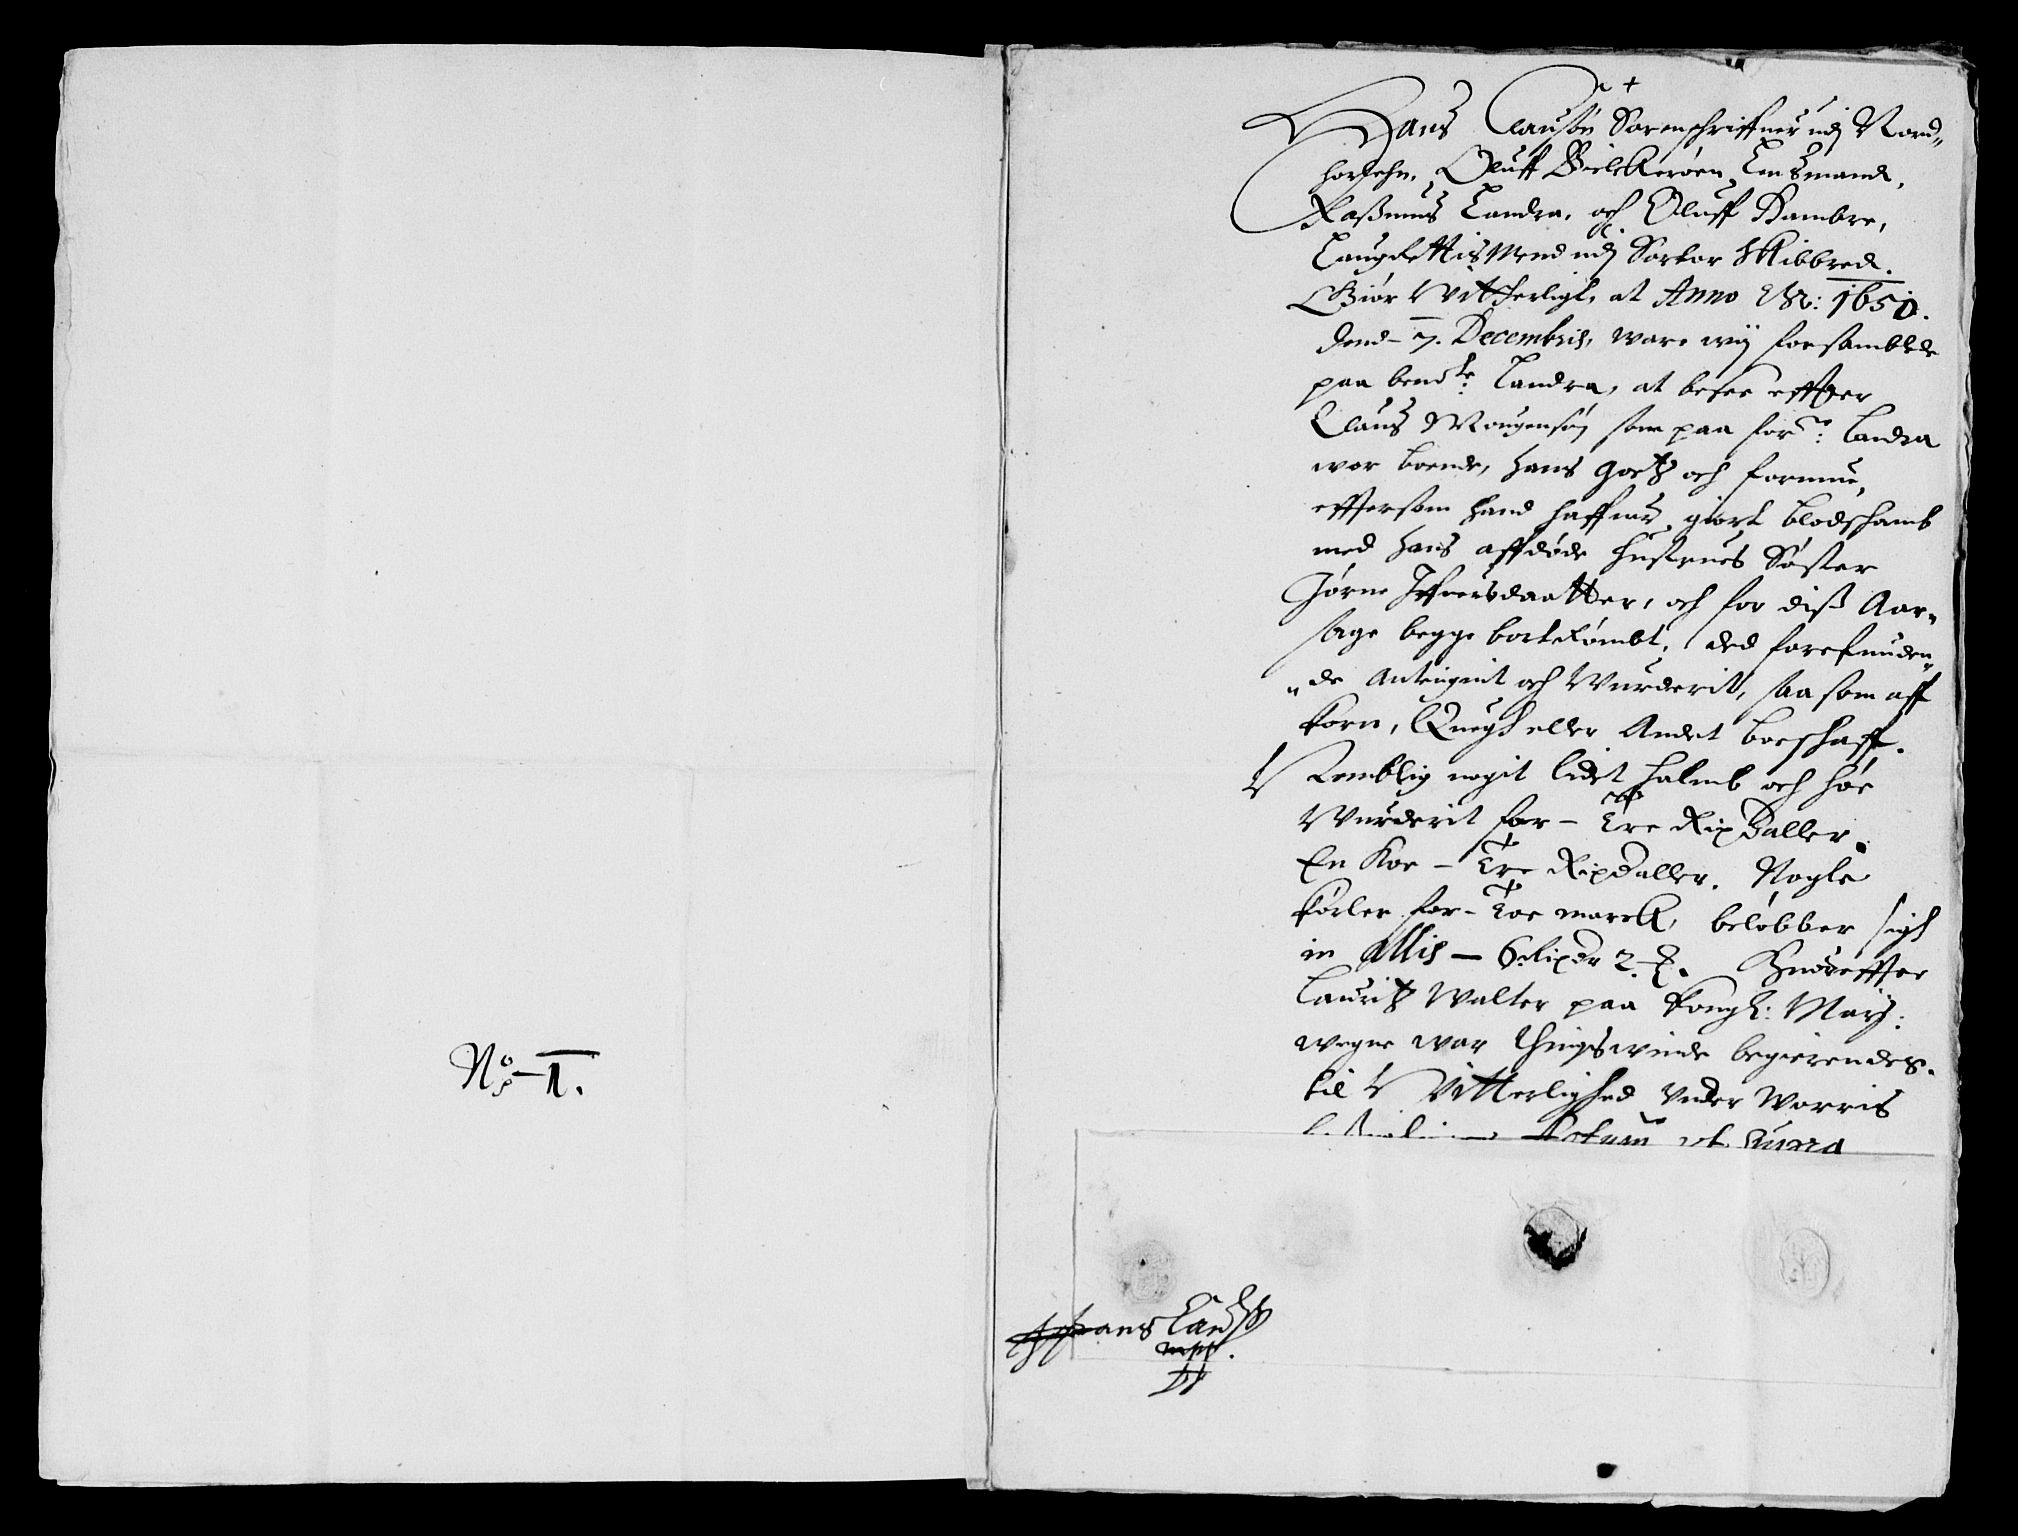 No. 1.
Hans Claußøn Sorenschriffuer udj Nord„
horlehn, Oluff Bielkerøen Lensmand,
Raßmus Landra, och Oluff Kambre,
Laugrettis Mend udj Sartor Skibbred.
Giør Vitterligt, at Anno 1651.
Dend 7. Decembris, ware wij forsamblede
paa bende: Landra, at besee effter
Claus Mougensøn som paa forne: Landra
war boende, hans Goetz och formue,
efftersom hand haffuer giort blodschamb
med hans affdøde hustrues Søster
Jørne Iffuersdaatter, och for diß Aar„
sage begge bortrømbt, ded forefunden„
„de Antegnit och Wurderit, saa som aff
korn, Quegh eller Andet boeschaff.
Nemblig nogit lidet halmb och høe
Wurderit for – Tre RixDaller.
En Koe – Tre RixDaller. Nogle
kørler for – Toe marck, beløbber sigh
in Allis – 6 Rixdr 2 . Huoreffter
Lauritz Walter paa Kongl: Mayj:
wegne war thingswinde begierendes.
til Vitterlighed Under Worris
Datum ut supra
Hans Clauß
mpp.